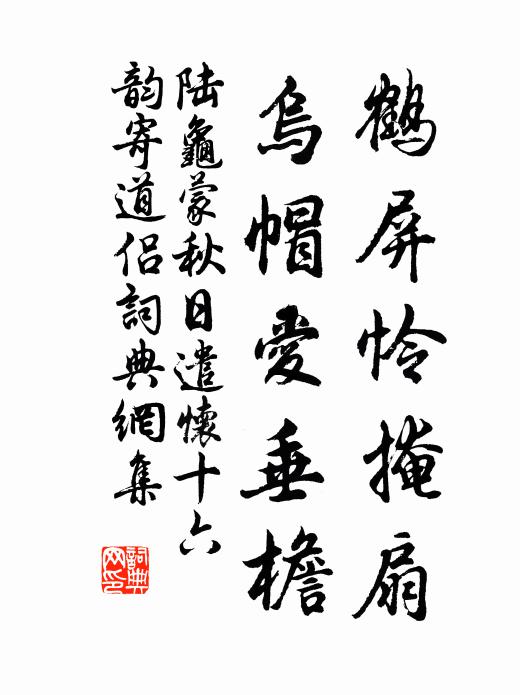 鶴屏怜掩扇
烏帽愛垂檐
陆龜蒙秋日遣懷十六
韵寄道侣詞典網集
詞典网印